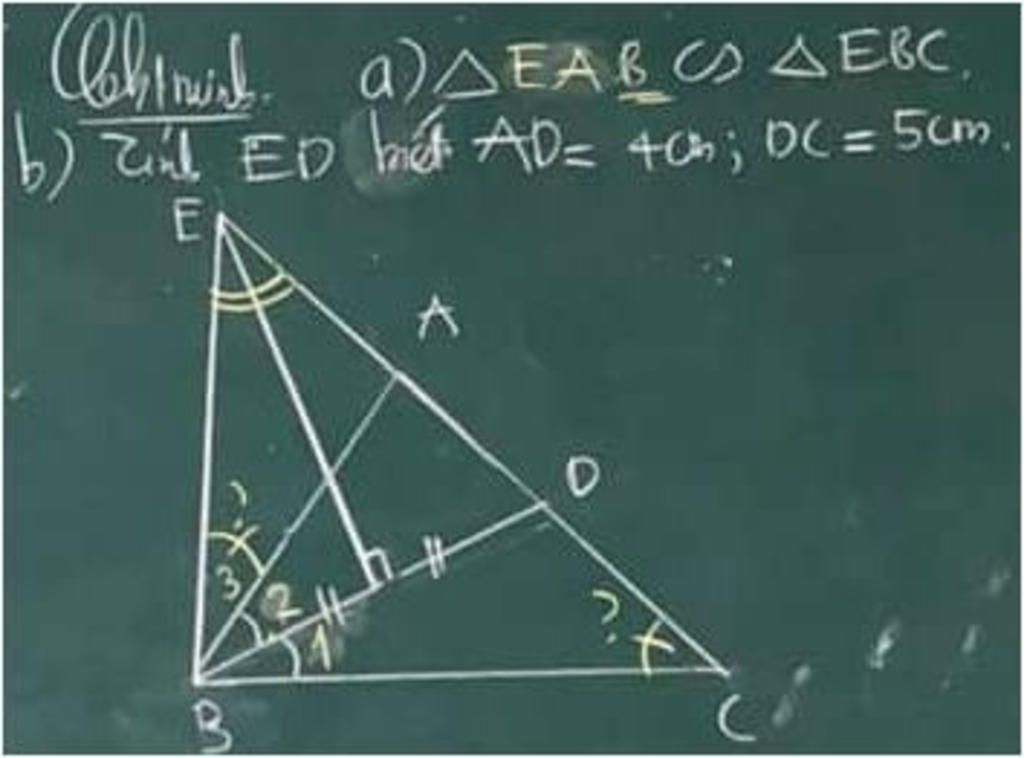 Chứng minh. a) △EAB ∽ △EBC.
b) Tính ED biết AD = 4cm; DC = 5cm.
E
A
D
?
3
2
1
?
B
C